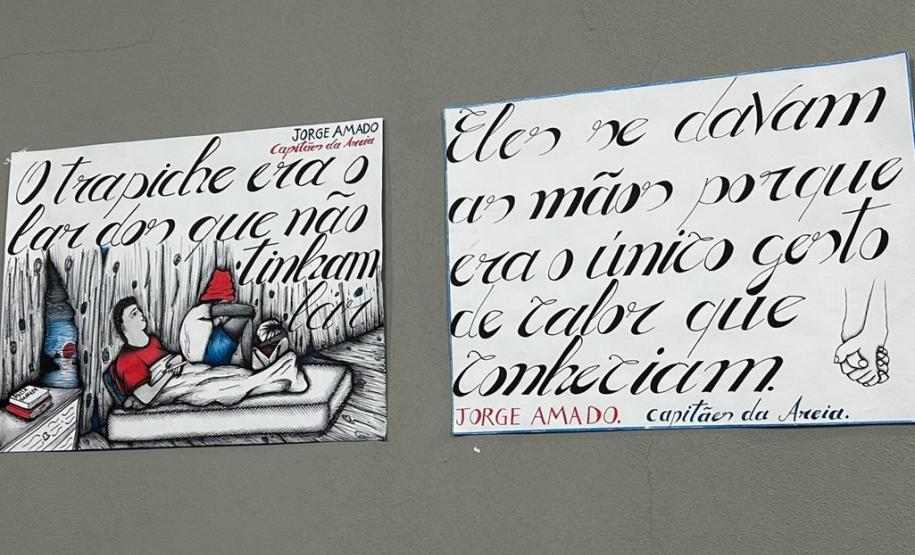 JORGE AMADO
Capitães da Areia
O trapiche era o
lar dos que não
tinham
lar
Eles se davam
as mãos porque
era o único gesto
de calor que
conheciam.
JORGE AMADO. Capitães da Areia.